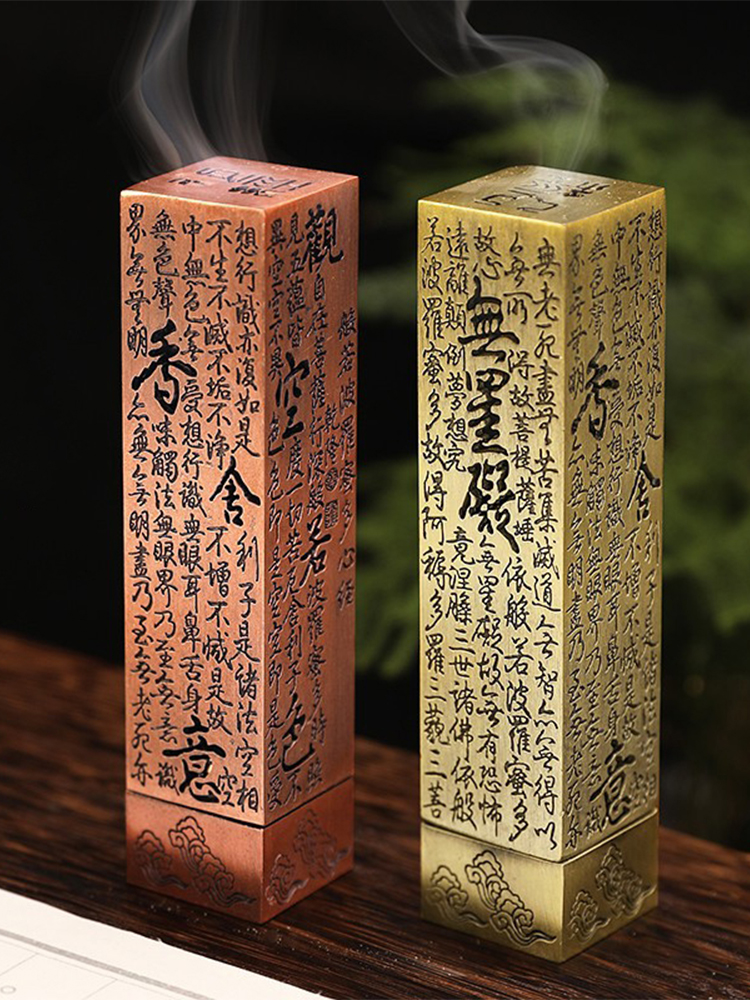 般若波羅蜜多心經
觀自在菩薩行深般若波羅蜜多時照
見五蘊皆空度一切苦厄舍利子色不
異空空不異色色即是空空即是色受
想行識亦復如是舍利子是諸法空相
不生不滅不垢不淨不增不減是故空
中無色無受想行識無眼耳鼻舌身意
無色聲香味觸法無眼界乃至無意識
界無無明亦無無明盡乃至無老死亦
想行識亦復如是舍利子是諸法空相
不生不滅不垢不淨不增不減是故空
中無色無受想行識無眼耳鼻舌身意
無色聲香味觸法無眼界乃至無意識
界無無明亦無無明盡乃至無老死亦
無老死盡無苦集滅道無智亦無得以
無所得故菩提薩埵依般若波羅蜜多
故心無罣礙無罣礙故無有恐怖
遠離顛倒夢想究竟涅槃三世諸佛依般
若波羅蜜多故得阿耨多羅三藐三菩